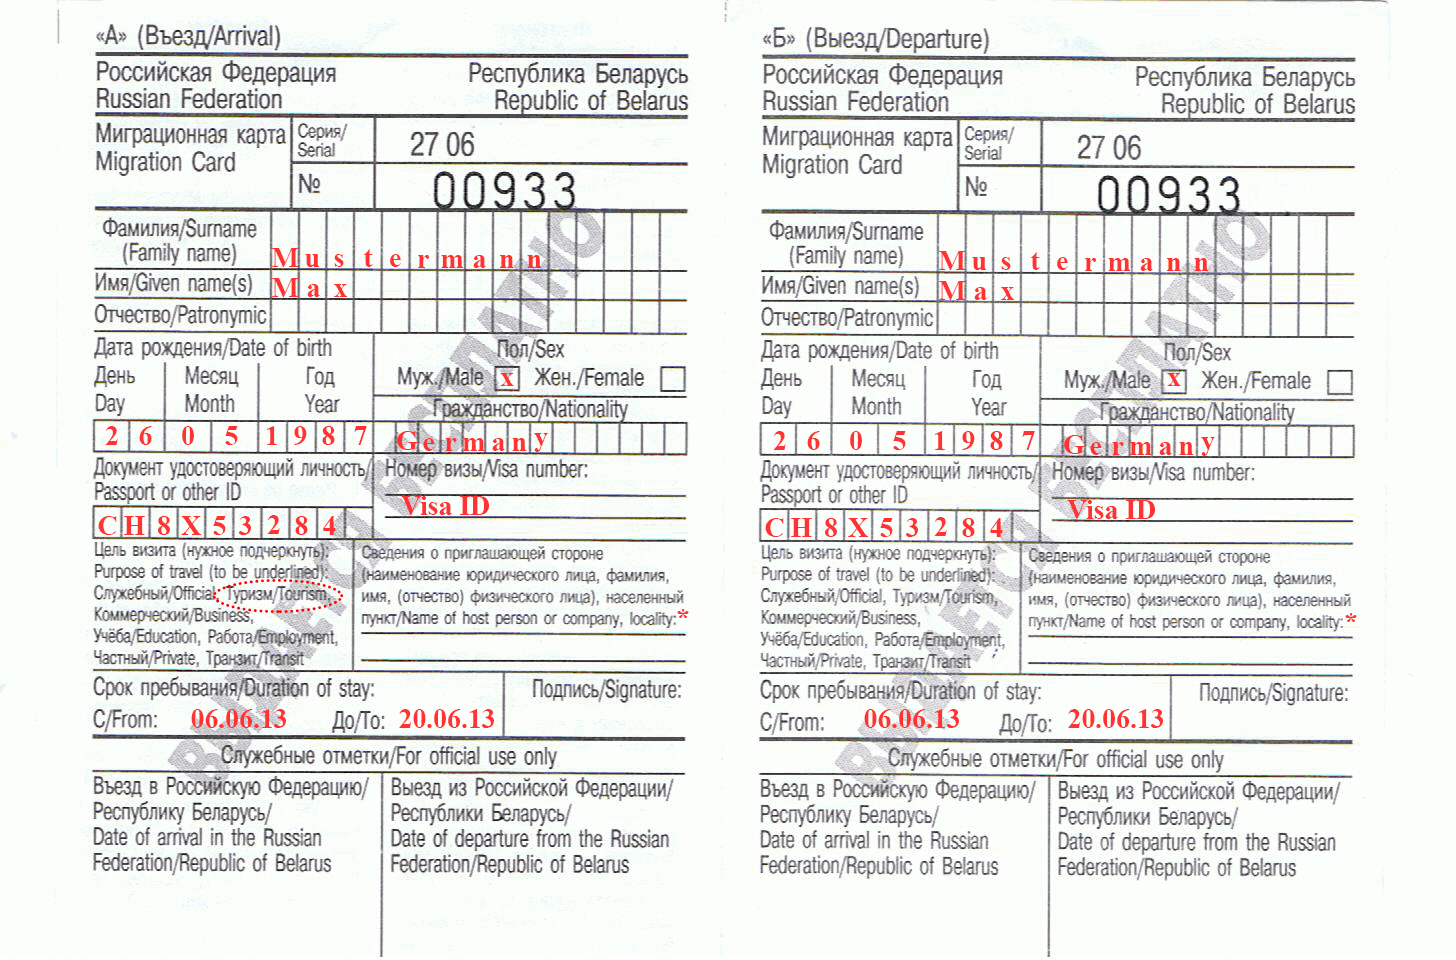 «А» (Въезд/Arrival)
Российская Федерация Республика Беларусь
Russian Federation Republic of Belarus
Миграционная карта
Migration Card
Серия/
Serial
27 06
№ 00933
Фамилия/Surname
(Family name) Mustermann
Имя/Given name(s) Max
Отчество/Patronymic
Дата рождения/Date of birth Пол/Sex
День Месяц Год Муж./Male x Жен./Female
Day Month Year Гражданство/Nationality
26 05 1987 Germany
Документ удостоверяющий личность/ Номер визы/Visa number:
Passport or other ID
Visa ID
CH8X53284
Цель визита (нужное подчеркнуть):
Purpose of travel (to be underlined):
Служебный/Official, Туризм/Tourism,
Коммерческий/Business,
Учёба/Education, Работа/Employment,
Частный/Private, Транзит/Transit
Сведения о приглашающей стороне
(наименование юридического лица, фамилия,
имя, (отчество) физического лица), населенный
пункт/Name of host person or company, locality:*
Срок пребывания/Duration of stay: Подпись/Signature:
С/From: 06.06.13 До/To: 20.06.13
Служебные отметки/For official use only
Въезд в Российскую Федерацию/
Республику Беларусь/
Date of arrival in the Russian
Federation/Republic of Belarus
Выезд из Российской Федерации/
Республики Беларусь/
Date of departure from the Russian
Federation/Republic of Belarus
ВЫДАЕТСЯ БЕСПЛАТНО
«Б» (Выезд/Departure)
Российская Федерация Республика Беларусь
Russian Federation Republic of Belarus
Миграционная карта
Migration Card
Серия/
Serial
27 06
№ 00933
Фамилия/Surname
(Family name) Mustermann
Имя/Given name(s) Max
Отчество/Patronymic
Дата рождения/Date of birth Пол/Sex
День Месяц Год Муж./Male x Жен./Female
Day Month Year Гражданство/Nationality
26 05 1987 Germany
Документ удостоверяющий личность/ Номер визы/Visa number:
Passport or other ID
Visa ID
CH8X53284
Цель визита (нужное подчеркнуть):
Purpose of travel (to be underlined):
Служебный/Official, Туризм/Tourism,
Коммерческий/Business,
Учёба/Education, Работа/Employment,
Частный/Private, Транзит/Transit
Сведения о приглашающей стороне
(наименование юридического лица, фамилия,
имя, (отчество) физического лица), населенный
пункт/Name of host person or company, locality:*
Срок пребывания/Duration of stay: Подпись/Signature:
С/From: 06.06.13 До/To: 20.06.13
Служебные отметки/For official use only
Въезд в Российскую Федерацию/
Республику Беларусь/
Date of arrival in the Russian
Federation/Republic of Belarus
Выезд из Российской Федерации/
Республики Беларусь/
Date of departure from the Russian
Federation/Republic of Belarus
ВЫДАЕТСЯ БЕСПЛАТНО